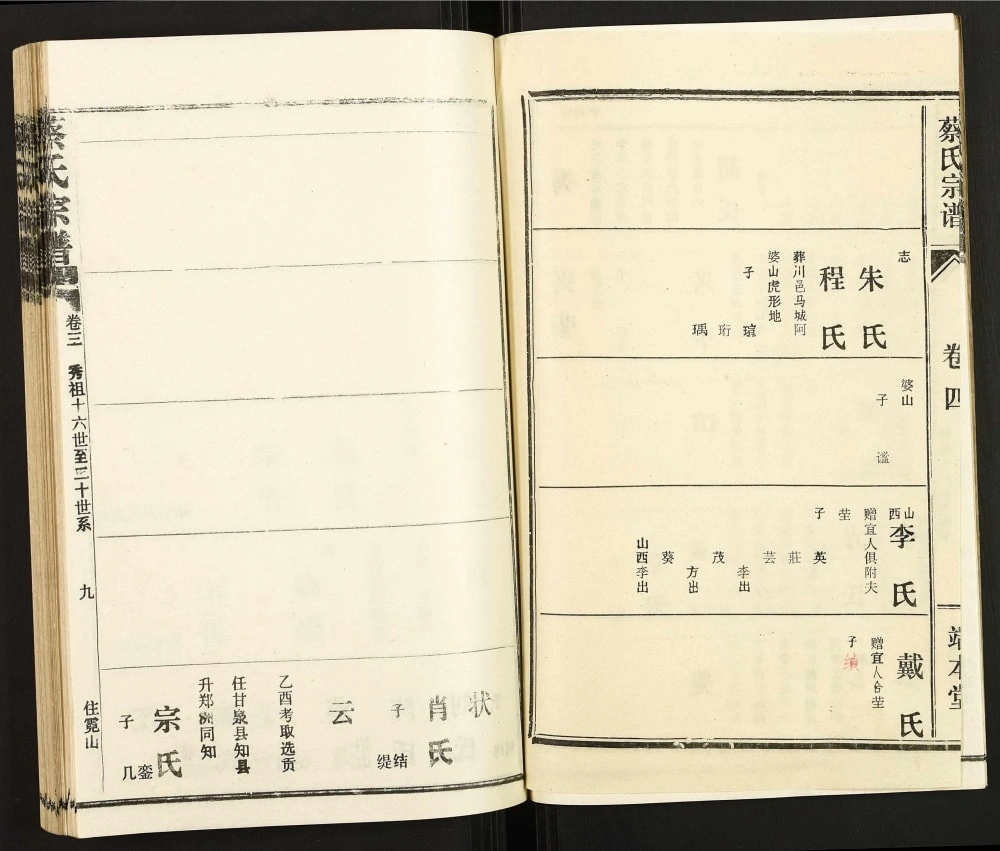 蔡氏宗谱
卷四
端本堂
志
朱氏
程氏
葬川邑马城阿
婆山虎形地
子
瑄
珩
瑀
婆山
子
谧
山西
李氏
赠宜人俱附夫
茔
子
英
莊
芸
李出
茂
方出
葵
山西李出
戴氏
赠宜人合茔
子
缜
状
肖氏
子
结
缇
云
乙酉考取选贡
任甘泉县知县
升郑洲同知
宗氏
子
銮
几
蔡氏宗谱
卷三
秀祖十六世至二十世系
九
住霓山